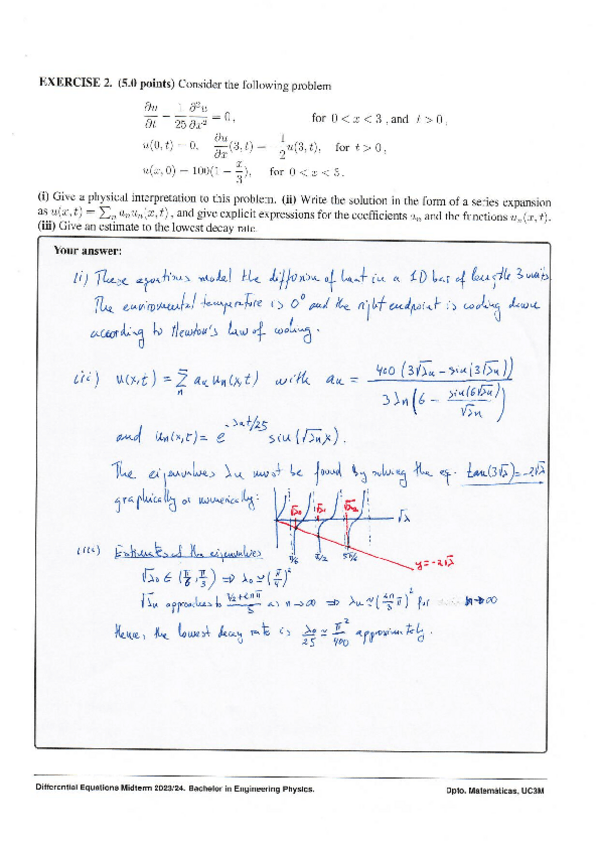 EXERCISE 2. (5.0 points) Consider the following problem
∂u/∂t − 1/25 ∂²u/∂x² = 0, for 0 < x < 3, and t > 0,
u(0,t) = 0, ∂u/∂x(3,t) = −1/2 u(3,t), for t > 0,
u(x,0) = 100(1 − x/3), for 0 < x < 3.
(i) Give a physical interpretation to this problem. (ii) Write the solution in the form of a series expansion
as u(x,t) = ∑n an un(x,t), and give explicit expressions for the coefficients an and the functions un(x,t).
(iii) Give an estimate to the lowest decay rate.
Your answer:
(i) These equations model the diffusion of heat in a 1D bar of length 3 units.
The environmental temperature is 0° and the right endpoint is cooling down
according to Newton's law of cooling.
(ii) u(x,t) = ∑n an un(x,t) with an = 400 (3√λn − sin(3√λn)) / 3λn(6 − sin(6√λn)/√λn)
and un(x,t) = e^(−λn t/25) sin(√λn x).
The eigenvalues λn must be found by solving the eq. tan(3√λ) = −2√λ
graphically or numerically:
√λ0 √λ1 √λ2
√λ
π/6 π/2 5π/6
y = −2√λ
(iii) Estimates of the eigenvalues
√λ0 ∈ (π/6, π/3) ⇒ λ0 ≃ (π/4)²
√λn approaches to as n→∞ ⇒ for n→∞
Hence, the lowest decay rate is λ0/25 ≃ π²/400 approximately.
Differential Equations Midterm 2023/24. Bachelor in Engineering Physics.
Dpto. Matemáticas, UC3M